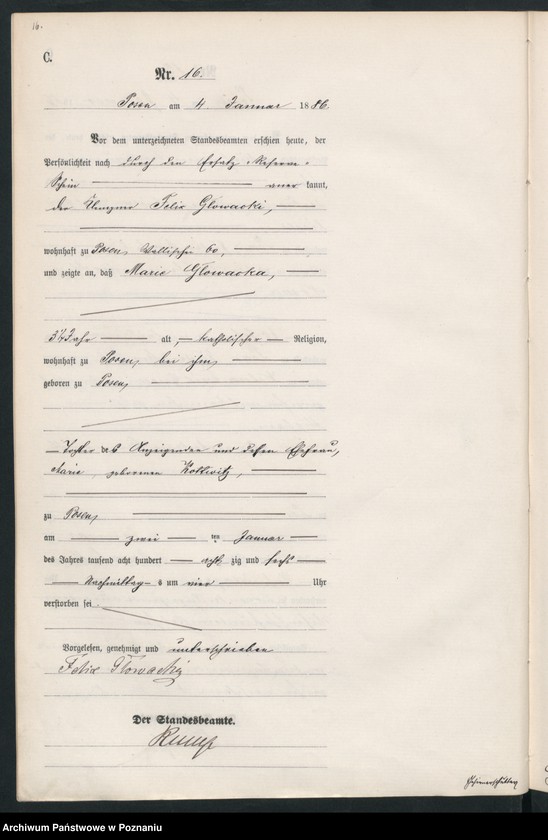 16.
C.
Nr. 16.
Posen am 4 Januar 1886.
Vor dem unterzeichneten Standesbeamten erschien heute, der
Persönlichkeit nach durch den Ersatz-Reserve-
Schein anerkannt,
der Felix Glowacki,
wohnhaft zu Posen, Wallischei 60,
und zeigte an, daß Marie Glowacka,
3 1/4 Jahr alt, katholischer Religion,
wohnhaft zu Posen, bei ihm,
geboren zu Posen,
Tochter des Anzeigenden und dessen Ehefrau,
Marie, geborenen Kottwitz,
zu Posen,
am zwei ten Januar
des Jahres tausend acht hundert acht zig und sechs
Nachmittag s um vier Uhr
verstorben sei
Vorgelesen, genehmigt und unterschrieben
Felix Glowacki
Der Standesbeamte.
Archiwum Państwowe w Poznaniu